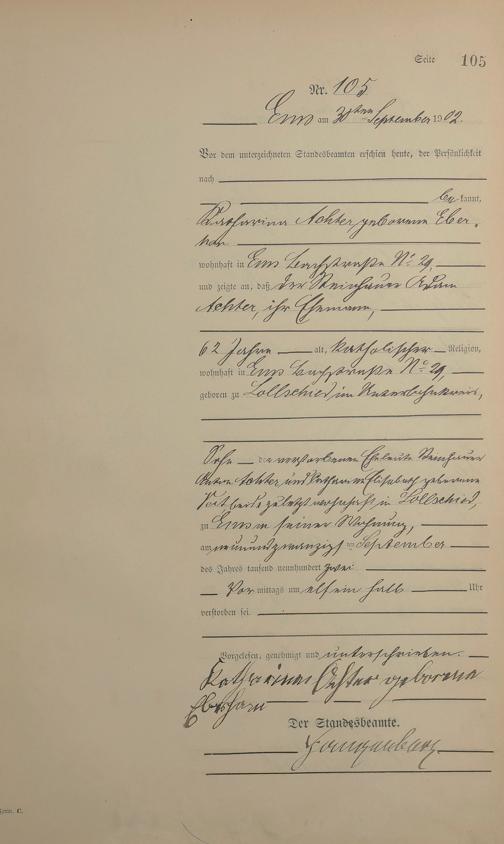 Seite 105
Nr. 105
Ems am 30ten September 1902.
Vor dem unterzeichneten Standesbeamten erschien heute, der Persönlichkeit
nach
bekannt,
Katharina Achter geborene Eber-
han
wohnhaft in Ems Bachstraße No 29,
und zeigte an, daß der Steinhauer Adam
Achter, ihr Ehemann,
62 Jahre alt, katholischer Religion,
wohnhaft in Ems Bachstraße No 29,
geboren zu Lollschied im Unterlahnkreis,
Sohn der verstorbenen Eheleute Steinhauer
Achter und Katharina Elisabeth geborene
beide zuletzt wohnhaft in Lollschied,
zu Ems in seiner Wohnung,
am neunundzwanzigsten September
des Jahres tausend neunhundert zwei
Vor mittags um elfein halb Uhr
verstorben sei.
Vorgelesen, genehmigt und unterschrieben.
Katharina Achter geborene
Eberhan
Der Standesbeamte.
Form. C.